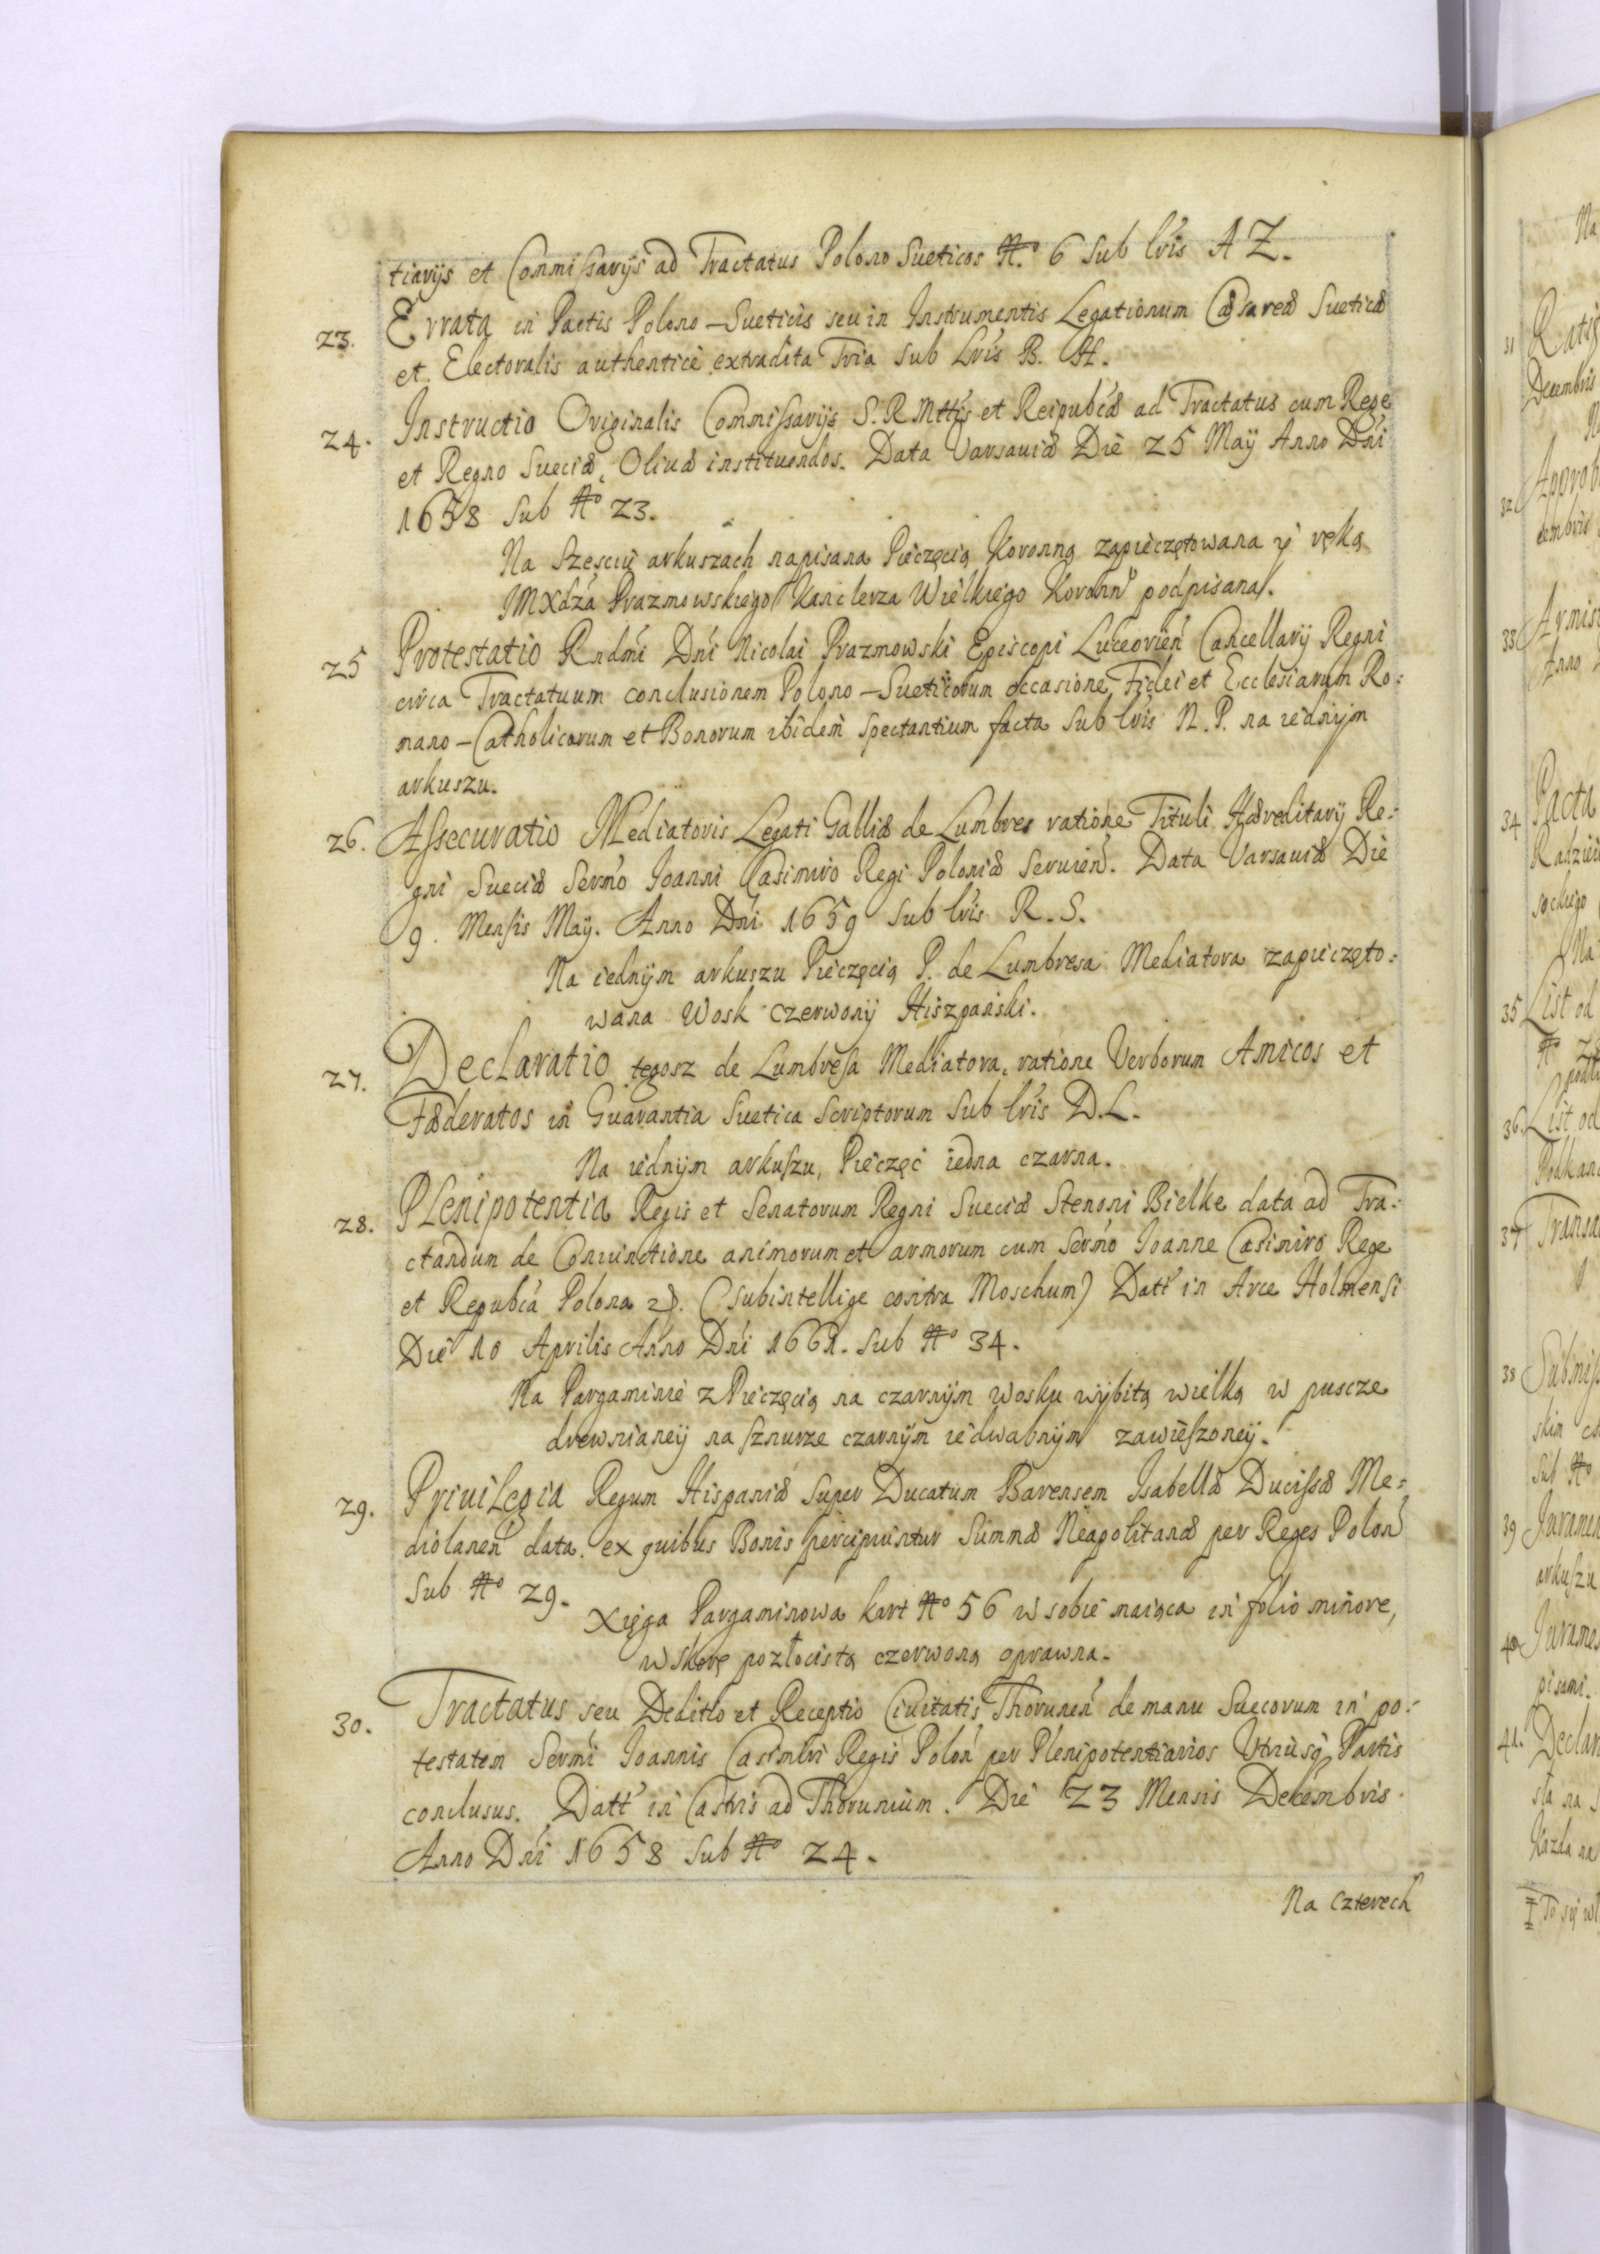 tiarijs et Commissarijs ad Tractatus Polono Sueticos No 6 sub lris A Z.
23. Errata in Pactis Polono-Sueticis seu in Instrumentis Legationum Cæsareæ Sueticæ
et Electoralis authenticè extradita Tria sub Lris B. H.
24. Instructio Originalis Commissarijs S. R. Mttis et Reipubcæ ad Tractatus cum Rege
et Regno Sueciæ, Oliuæ instituendos. Data Varsauiæ Die 25 Maij Anno Dni
1658 sub No 23.
Na szesciu arkuszach napisana Pieczęcią Koronną zapieczętowana y ręką
JMXdza Prazmowskiego Kanclerza Wielkiego Koronno podpisana.
25 Protestatio Rndmi Dni Nicolai Prazmowski Episcopi Luceorien Cancellarij Regni
circa Tractatuum conclusionem Polono-Sueticorum occasione Fidei et Ecclesiarum Ro:
mano-Catholicarum et Bonorum ibidem spectantium facta sub lris N. P. na iednym
arkuszu.
26. Assecuratio Mediatoris Legati Galliæ de Lumbres ratione Tituli Hæreditarij Re:
gni Sueciæ Sermo Joanni Casimiro Regi Poloniæ seruien. Data Varsauiæ Die
9. Mensis Maij. Anno Dni 1659 sub lris R. S.
Na iednym arkuszu Pieczęcią P. de Lumbresa Mediatora zapieczęto:
wana Wosk czerwony Hiszpański.
27. Declaratio tegosz de Lumbresa Mediatora, ratione Verborum Amicos et
Fæderatos in Guarantia Suetica scriptorum sub lris D. L.
Na iednym arkuszu, Pieczęć iedna czarna.
28. Plenipotentia Regis et Senatorum Regni Sueciæ Stenoni Bielke data ad Tra:
ctandum de Coniunctione animorum et armorum cum Sermo Joanne Casimiro Rege
et Repubca Polona (subintellige contra Moschum) Datt in Arce Holmensi
Die 10 Aprilis Anno Dni 1661. sub No 34.
Na Pargaminie z Pieczęcią na czarnym wosku wybitą wielką w puscze
drewnianey na sznurze czarnym iedwabnym zawieszoney.
29. Priuilegia Regum Hispaniæ super Ducatum Barensem Isabellæ Ducissæ Me:
diolanen data. ex quibus Bonis percipiuntur Summæ Neapolitanæ per Reges Polon
sub No 29.
Xięga Pargaminowa kart No 56 w sobie maiąca in folio minore,
w skorę pozłocistą czerwoną oprawna.
30. Tractatus seu Deditio et Receptio Ciuitatis Thorunen de manu Suecorum in po:
testatem Sermi Joannis Casimiri Regis Polon per Plenipotentiarios Utriusq Partis
conclusus. Datt in Castris ad Thorunium. Die 23 Mensis Decembris
Anno Dni 1658 sub No 24.
Na czterech